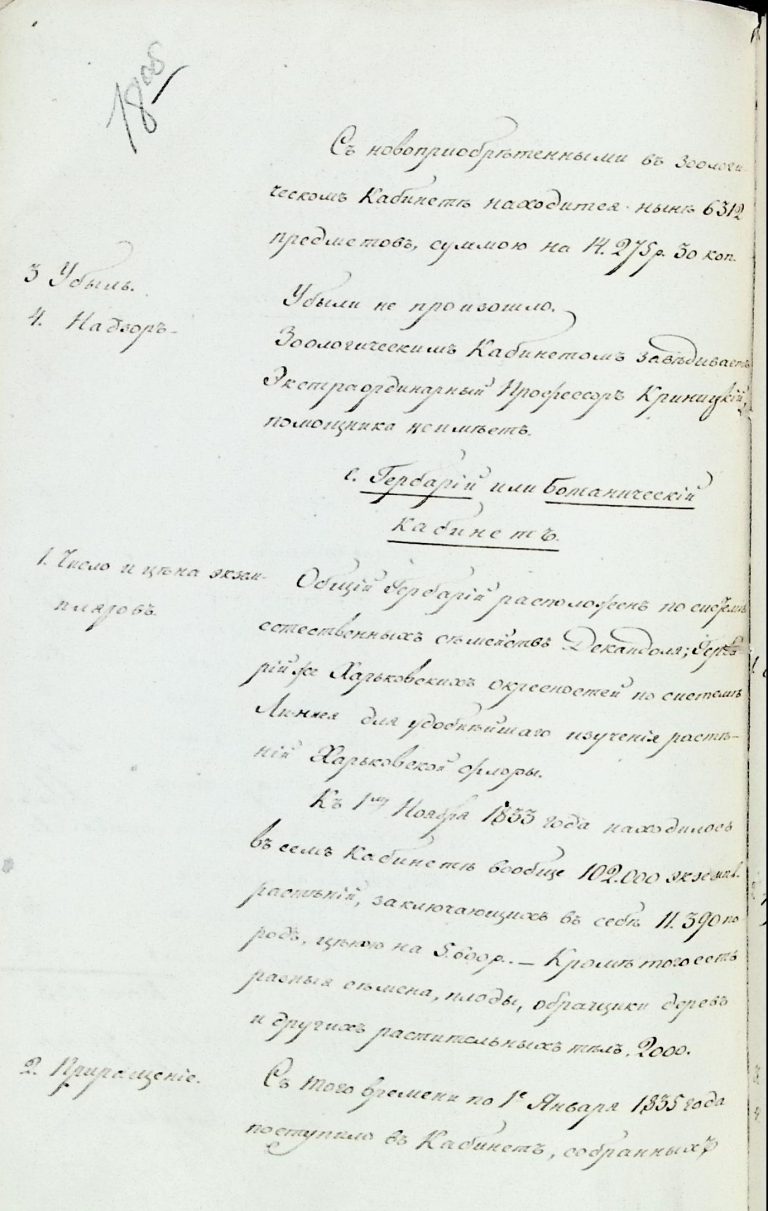 18
Съ новоприобрѣтенными въ Зоологи
ческомъ Кабинетѣ находится нынѣ 6312
предметовъ, суммою на 14.275 р. 30 коп.
3 Убыль.
Убыли не произошло.
4. Надзоръ
Зоологическимъ Кабинетомъ завѣдываетъ
Экстраординарный Профессоръ Криницкій,
помощника неимѣетъ.
е. Гербарій или Ботаническій
Кабинетъ.
1. Число и цѣна экзем-
пляровъ.
Общій Гербарій расположенъ по системѣ
естественныхъ сѣмействъ Декандоля; Герба
рій же Харьковскихъ окресностей по системѣ
Линнея для удобнѣйшаго изученія растѣ-
ній Харьковской флоры.
Къ 1му Ноября 1833 года находилось
въ семъ Кабинетѣ вообще 102.000 экземпл.
растѣній, заключающихъ въ себѣ 11.390 по
родъ, цѣною на 5.600 р. — Кромѣ того есть
разныя сѣмена, плоды, образчики деревъ
и другихъ растительныхъ тѣлъ, 2000.
2. Приращеніе.
Съ того времени по 1е Января 1835 года
поступило въ Кабинетъ, собранныхъ